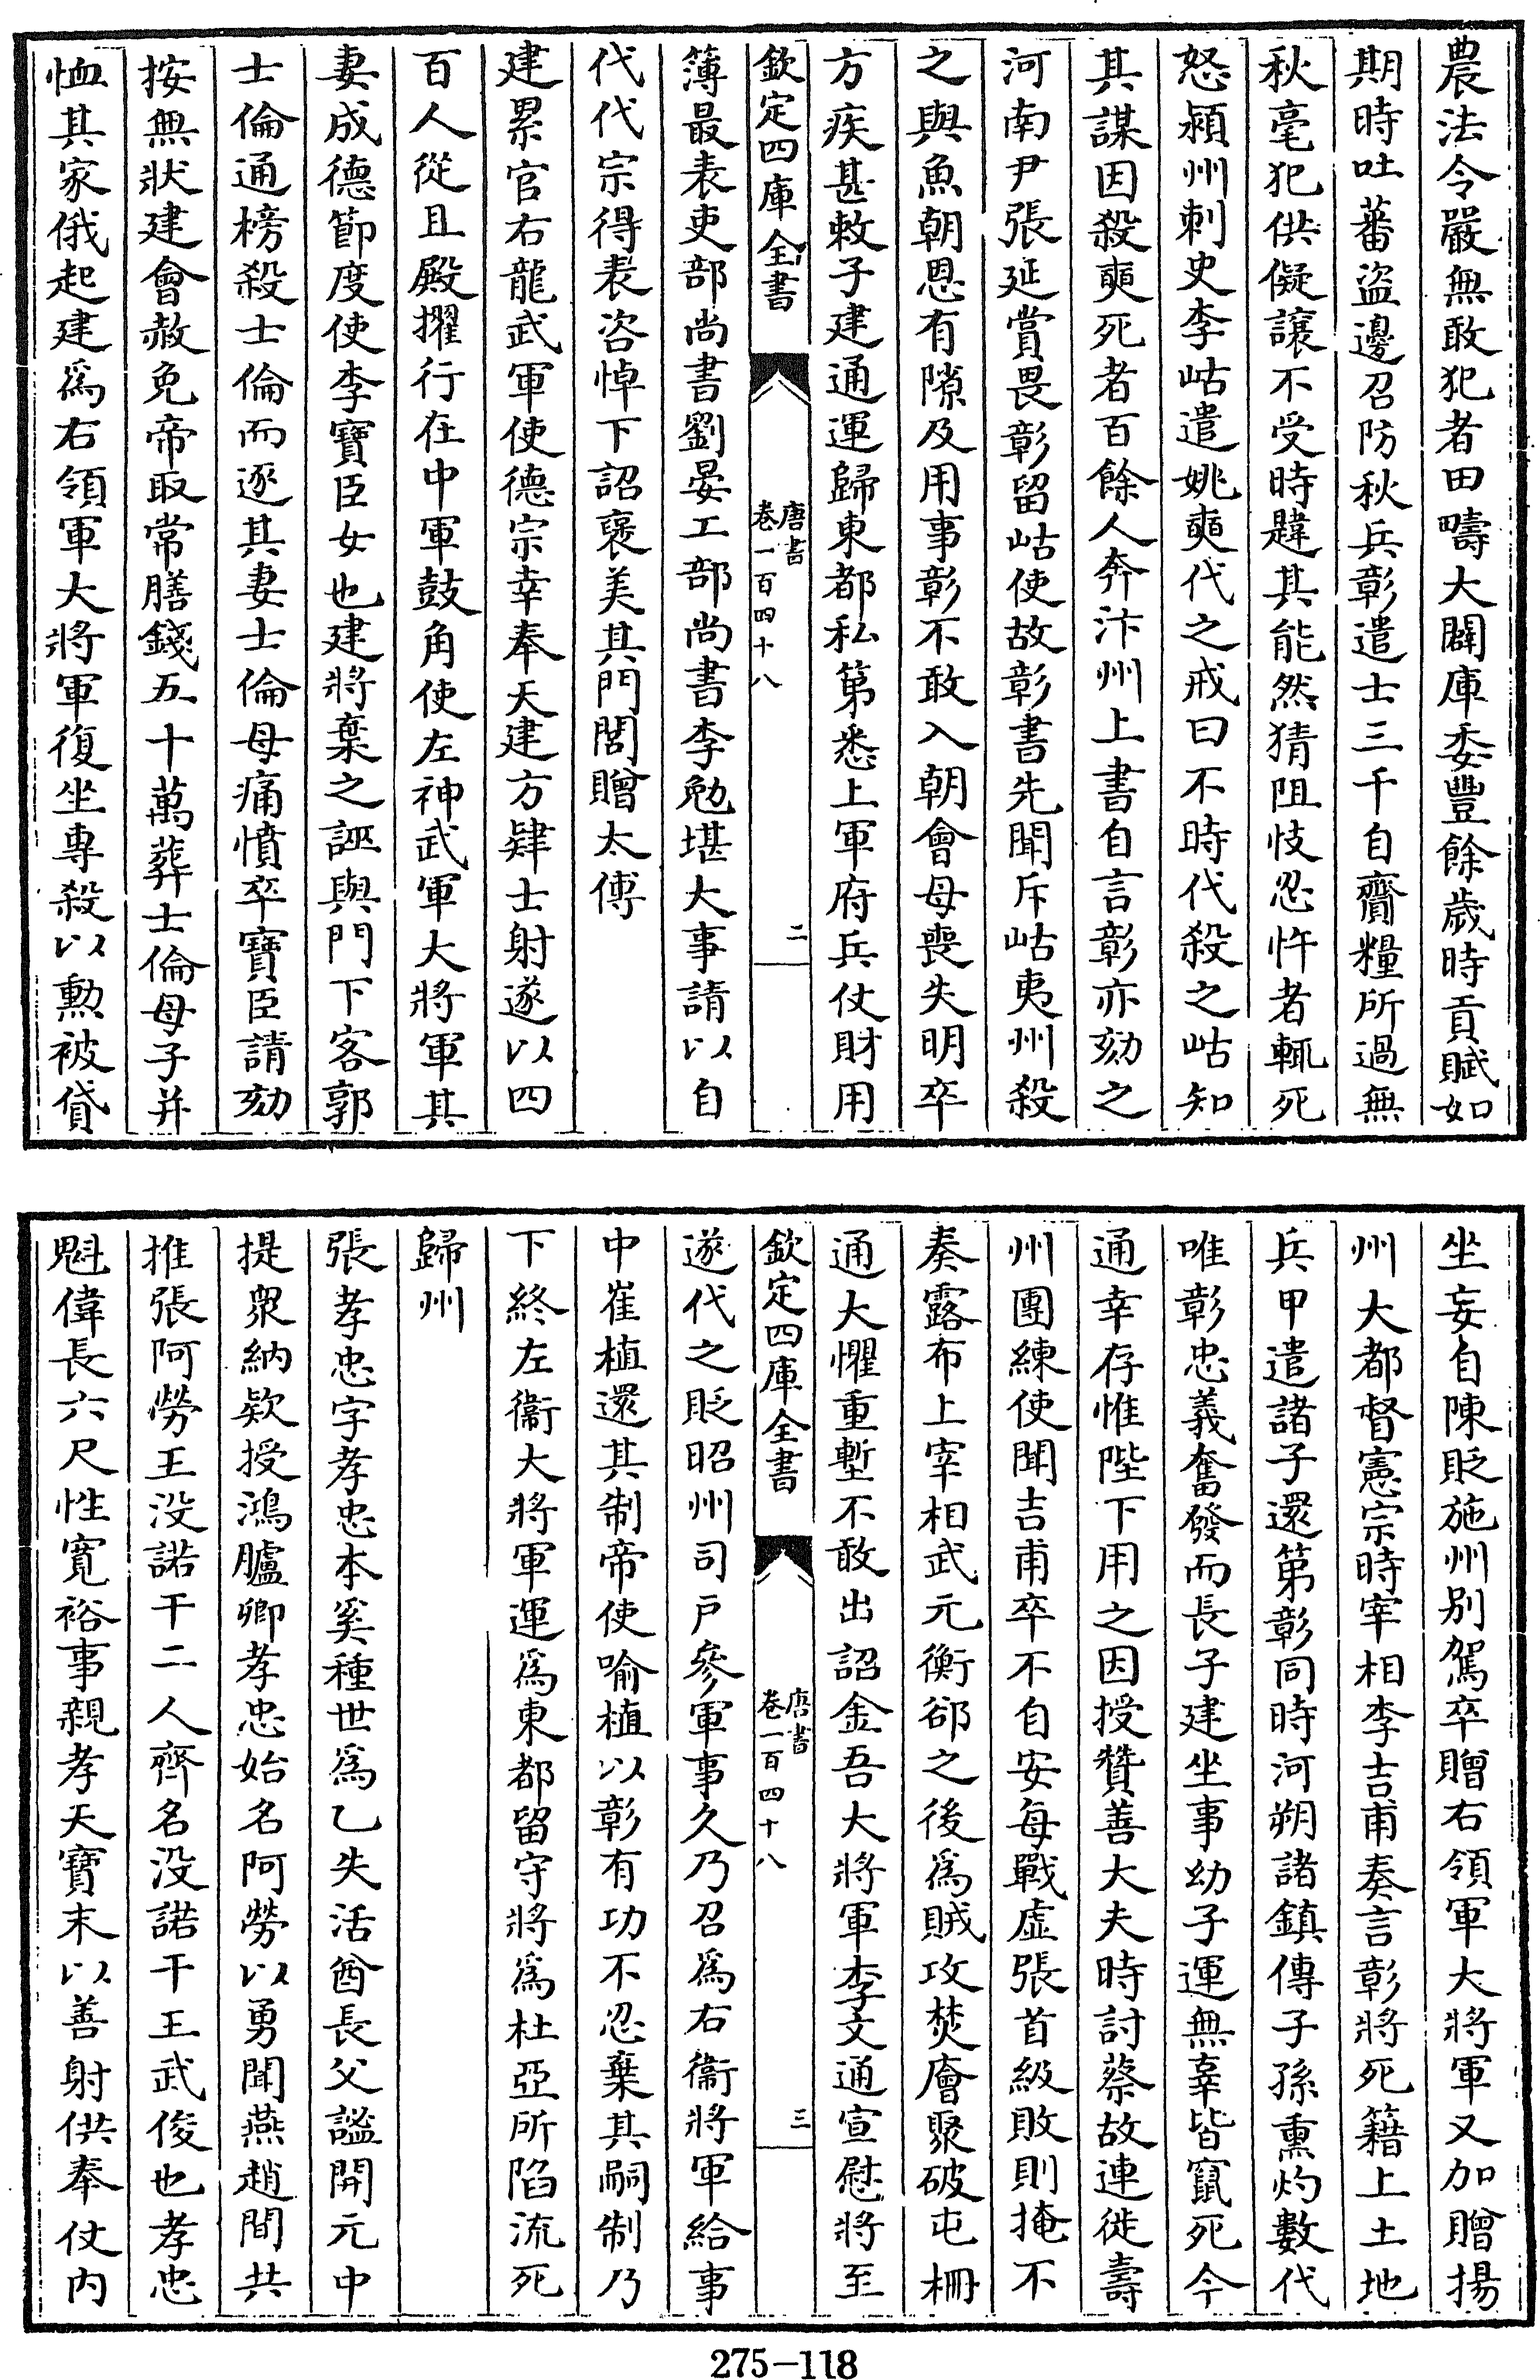 農法令嚴無敢犯者田疇大闢庫委豐餘歲時貢賦如
期時吐蕃盜邊召防秋兵彰遣士三千自齎糧所過無
秋毫犯供儗讓不受時韙其能然猜阻忮忍忤者輒死
怒潁州刺史李岵遣姚奭代之戒曰不時代殺之岵知
其謀因殺奭死者百餘人奔汴州上書自言彰亦劾之
河南尹張延賞畏彰留岵使故彰書先聞斥岵夷州殺
之與魚朝恩有隙及用事彰不敢入朝會母喪失明卒
方疾甚敕子建通運歸東都私第悉上軍府兵仗財用
欽定四庫全書
唐書
卷一百四十八
二
簿最表吏部尚書劉晏工部尚書李勉堪大事請以自
代代宗得表咨悼下詔襃美其門閭贈太傅
建累官右龍武軍使德宗幸奉天建方肄士射遂以四
百人從且殿擢行在中軍鼓角使左神武軍大將軍其
妻成德節度使李寶臣女也建將棄之誣與門下客郭
士倫通榜殺士倫而逐其妻士倫母痛憤卒寶臣請劾
按無狀建會赦免帝取常膳錢五十萬葬士倫母子并
恤其家俄起建爲右領軍大將軍復坐專殺以勳被貸
坐妄自陳貶施州別駕卒贈右領軍大將軍又加贈揚
州大都督憲宗時宰相李吉甫奏言彰將死籍上土地
兵甲遣諸子還第彰同時河朔諸鎮傳子孫熏灼數代
唯彰忠義奮發而長子建坐事幼子運無辜皆竄死今
通幸存惟陛下用之因授贊善大夫時討蔡故連徙壽
州團練使聞吉甫卒不自安每戰虛張首級敗則掩不
奏露布上宰相武元衡卻之後爲賊攻焚廥聚破屯柵
通大懼重塹不敢出詔金吾大將軍李文通宣慰將至
欽定四庫全書
唐書
卷一百四十八
三
遂代之貶昭州司戶參軍事久乃召爲右衞將軍給事
中崔植還其制帝使喻植以彰有功不忍棄其嗣制乃
下終左衞大將軍運爲東都留守將爲杜亞所陷流死
歸州
張孝忠字孝忠本奚種世爲乙失活酋長父謐開元中
提衆納欵授鴻臚卿孝忠始名阿勞以勇聞燕趙間共
推張阿勞王沒諾干二人齊名沒諾干王武俊也孝忠
魁偉長六尺性寬裕事親孝天寶末以善射供奉仗內
275-118